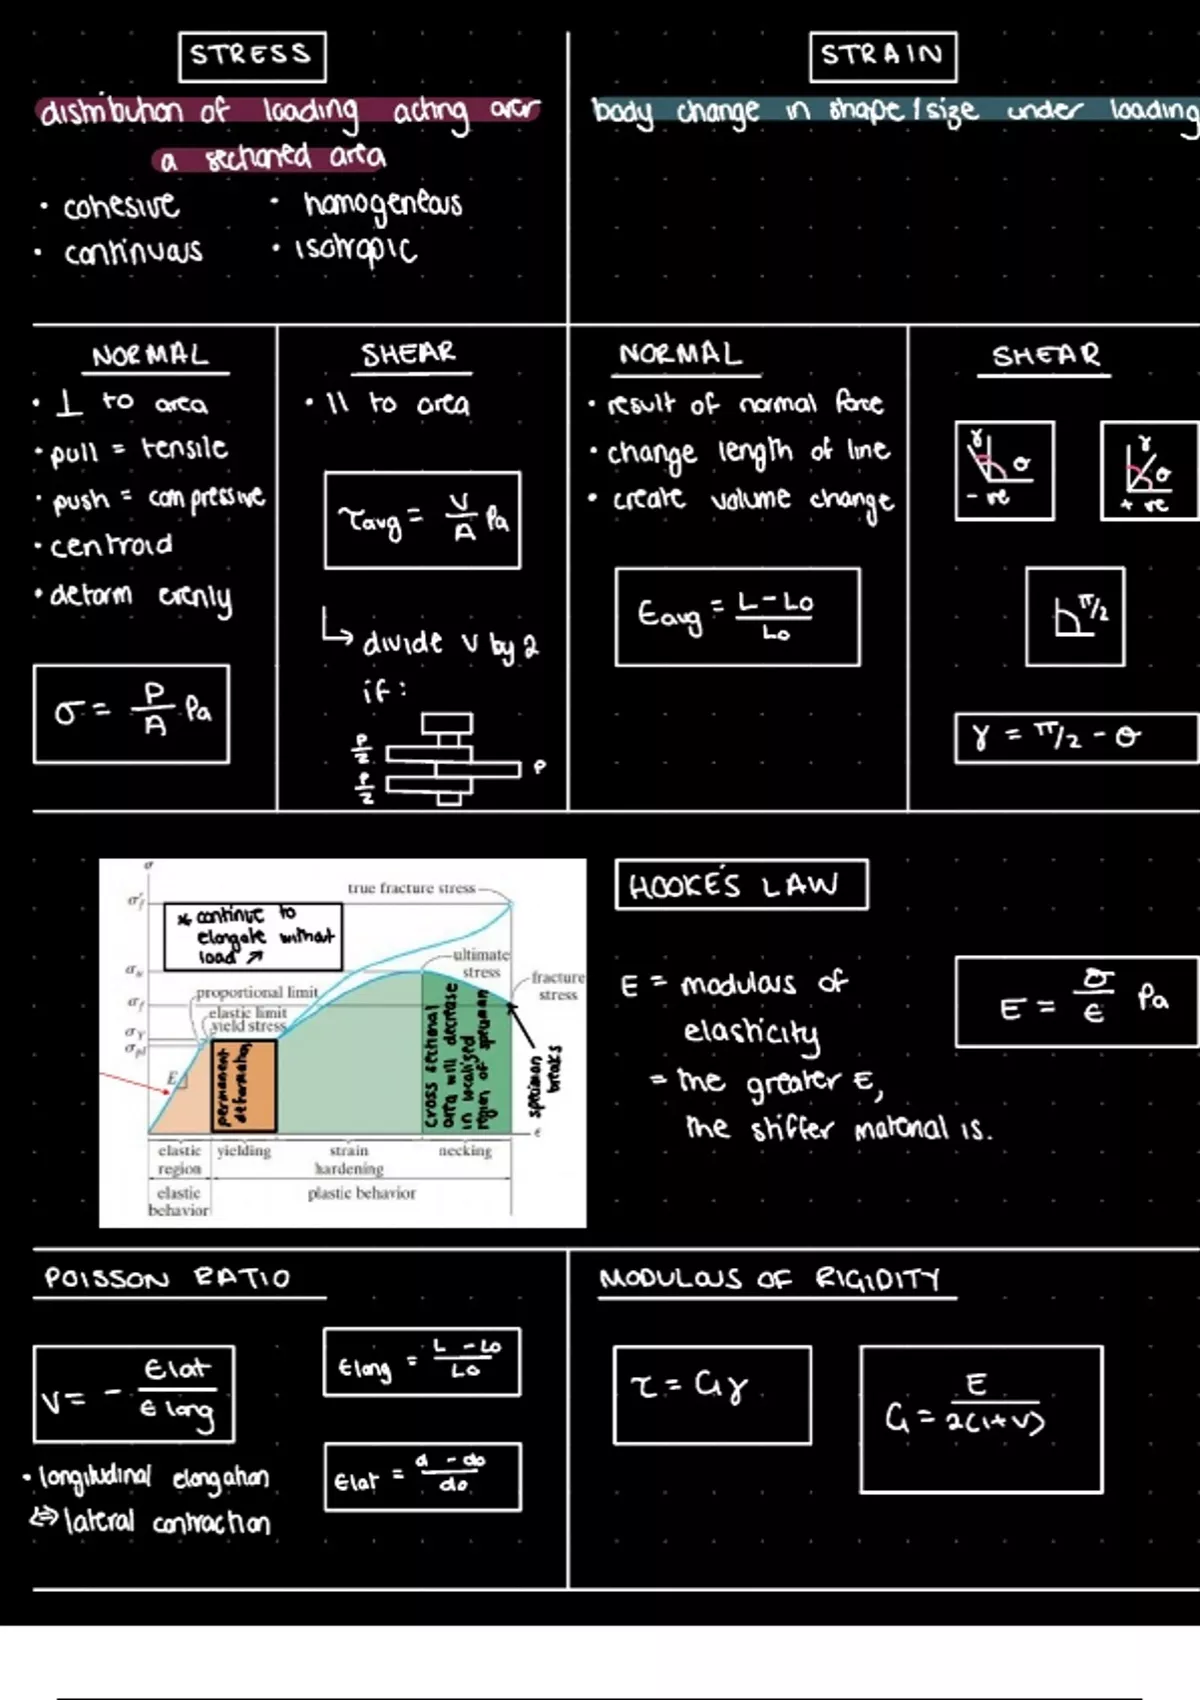 STRESS
distribution of loading acting over
a sectioned area
• cohesive • homogeneous
• continuous • isotropic
STRAIN
body change in shape / size under loading
NORMAL
• ⊥ to area
• pull = tensile
• push = compressive
• centroid
• deform evenly
σ = P/A Pa
SHEAR
• || to area
τavg = V/A Pa
↳ divide V by 2
if:
P/2
P/2
P
NORMAL
• result of normal force
• change length of line
• create volume change
Eavg = L-Lo/Lo
SHEAR
γ θ
- ve
γ θ
+ ve
π/2
γ = π/2 - θ
σ
true fracture stress
σ'f
* continue to
elongate without
load ↗
σu
ultimate
stress
fracture
stress
proportional limit
σf
elastic limit
yield stress
σY
σpl
E
permanent
deformation
cross sectional
area will decrease
in localised
region of specimen
specimen
breaks
ϵ
elastic
region
yielding
strain
hardening
necking
elastic
behavior
plastic behavior
HOOKE'S LAW
E = modulous of
elasticity
= the greater E,
the stiffer material is.
E = σ/ϵ Pa
POISSON RATIO
V = - Elat/Elong
• longitudinal elongation
⇔ lateral contraction
Elong = L - Lo/Lo
Elat = d - do/do
MODULOUS OF RIGIDITY
τ = Gγ
G = E/2(1+V)